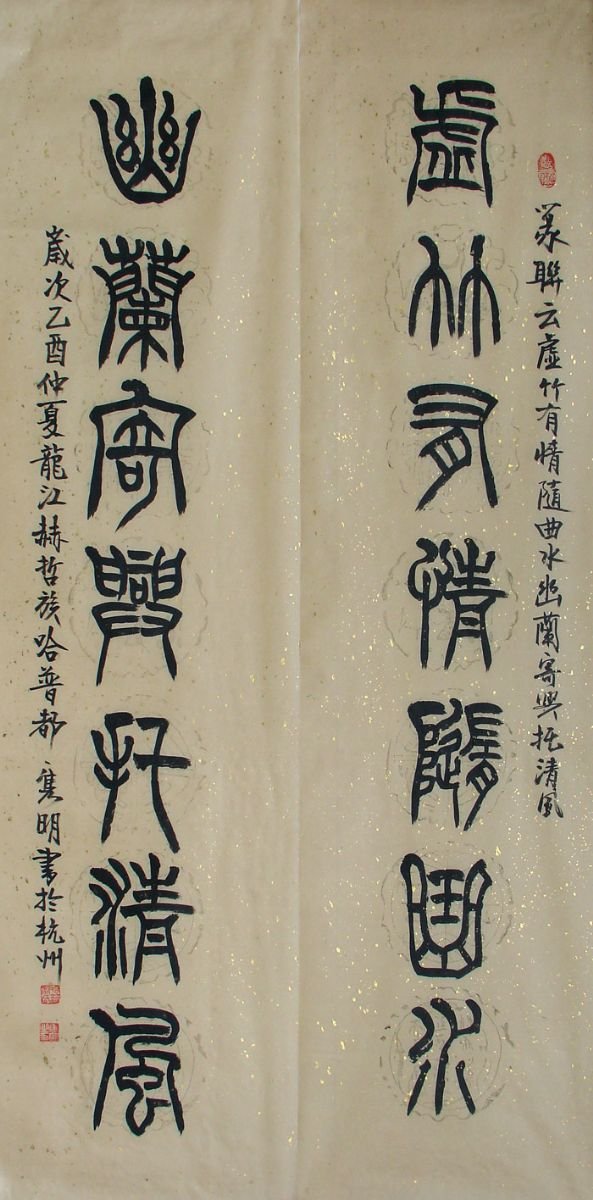 篆聯云虛竹有情隨曲水幽蘭寄興托清風
虛竹有情隨曲水
幽蘭寄興托清風
歲次乙酉仲夏龍江赫哲族哈普都 隽明書於杭州